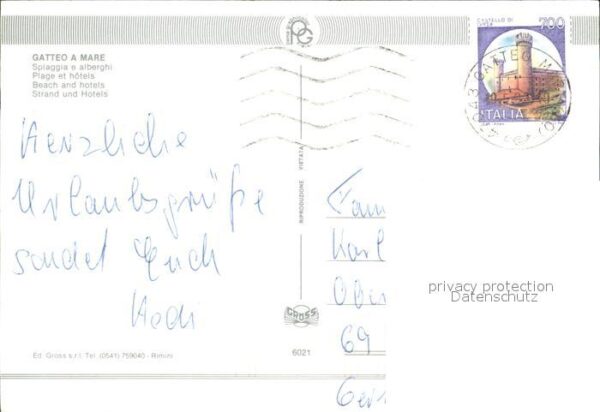 GATTEO A MARE
Spiaggia e alberghi
Plage et hôtels
Beach and hotels
Strand und Hotels
CASTELLO DI
700
ITALIA
47043 GATTEO
Herzliche
Urlaubsgrüße
sendet Euch
Hedi
RIPRODUZIONE VIETATA
GROSS
6021
Fam
Karl
Ober
69
Ger
privacy protection
Datenschutz
Ed. Gross s.r.l. Tel. (0541) 759040 - Rimini